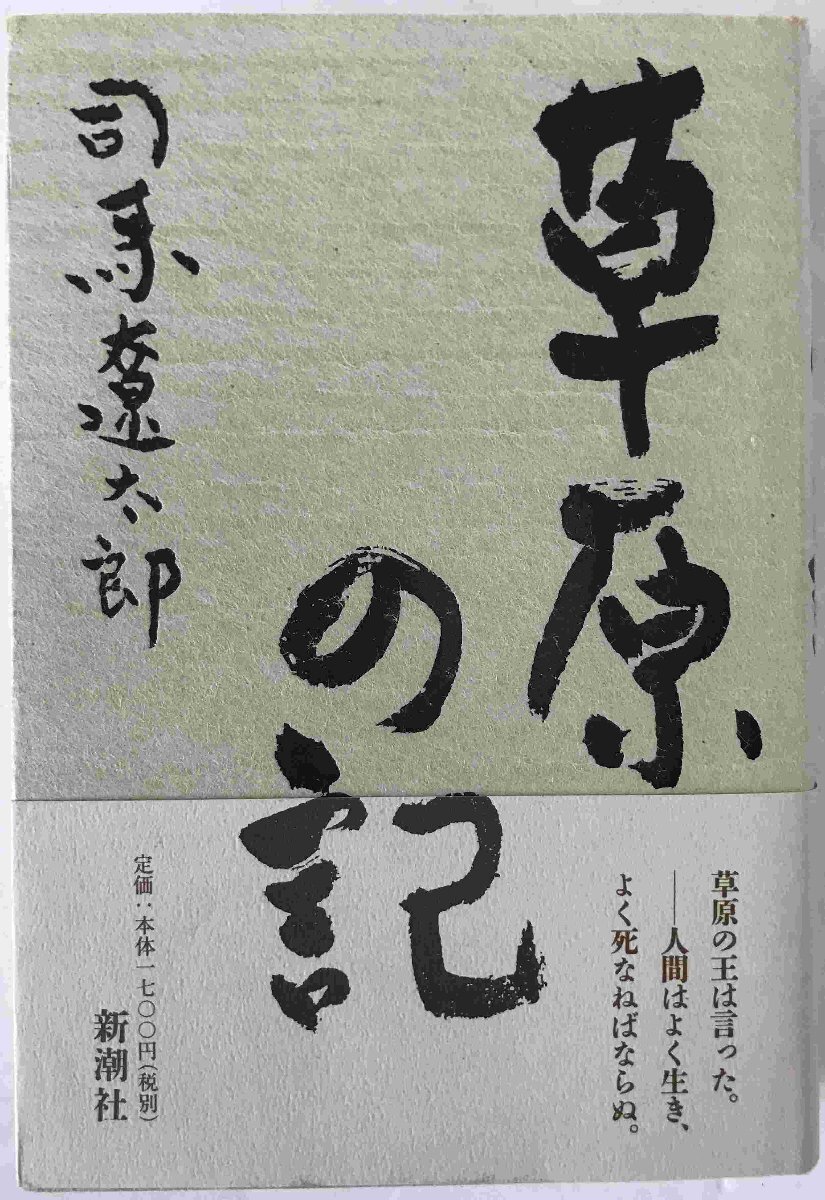 草原
の記
司馬遼太郎
草原の王は言った。
――人間はよく生き、
よく死なねばならぬ。
定価：本体一七〇〇円（税別）
新潮社